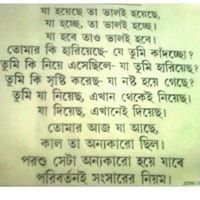 যা হয়েছে তা ভালই হয়েছে,
যা হচ্ছে, তা ভালই হচ্ছে।
যা হবে তাও ভালই হবে।
তোমার কি হারিয়েছে- যে তুমি কাঁদচ্ছো?
তুমি কি নিয়ে এসেছিলে- যা তুমি হারিয়েছ?
তুমি কি সৃষ্টি করেছ- যা নষ্ট হয়ে গেছে?
তুমি যা নিয়েছ, এখান থেকেই নিয়েছ।
যা দিয়েছ, এখানেই দিয়েছ।
তোমার আজ যা আছে,
কাল তা অন্যকারো ছিল।
পরশু সেটা অন্যকারো হয়ে যাবে
পরিবর্তনই সংসারের নিয়ম।